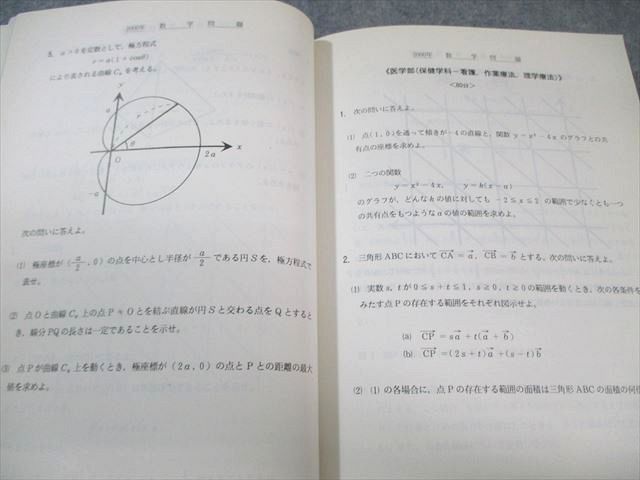 2000年 数 学 問 題
5. a>0を定数として，極方程式
r=a(1+cosθ)
により表される曲線Cₐを考える。
y
a
θ
O
2a
x
-a
次の問いに答えよ。
(1) 極座標が(a/2, 0)の点を中心とし半径がa/2である円Sを，極方程式で
表せ。
(2) 点Oと曲線Cₐ上の点P≠Oとを結ぶ直線が円Sと交わる点をQとすると
き，線分PQの長さは一定であることを示せ。
(3) 点Pが曲線Cₐ上を動くとき，極座標が(2a, 0)の点とPとの距離の最大
値を求めよ。
2000年 数 学 問 題
《医学部(保健学科－看護，作業療法，理学療法)》
<80分>
1. 次の問いに答えよ。
(1) 点(1, 0)を通って傾きが-4の直線と，関数y=x³-4xのグラフとの共
有点の座標を求めよ。
(2) 二つの関数
y=x³-4x, y=k(x-a)
のグラフが，どんなkの値に対しても -2≦x≦2 の範囲で少なくとも一つ
の共有点をもつようなaの値の範囲を求めよ。
2. 三角形ABCにおいてCA=a, CB=bとする。次の問いに答えよ。
(1) 実数s, tが0≦s+t≦1, s≧0, t≧0の範囲を動くとき，次の各条件を
みたす点Pの存在する範囲をそれぞれ図示せよ。
(a) CP=sa+t(a+b)
(b) CP=(2s+t)a+(s-t)b
(2) (1)の各場合に，点Pの存在する範囲の面積は三角形ABCの面積の何倍